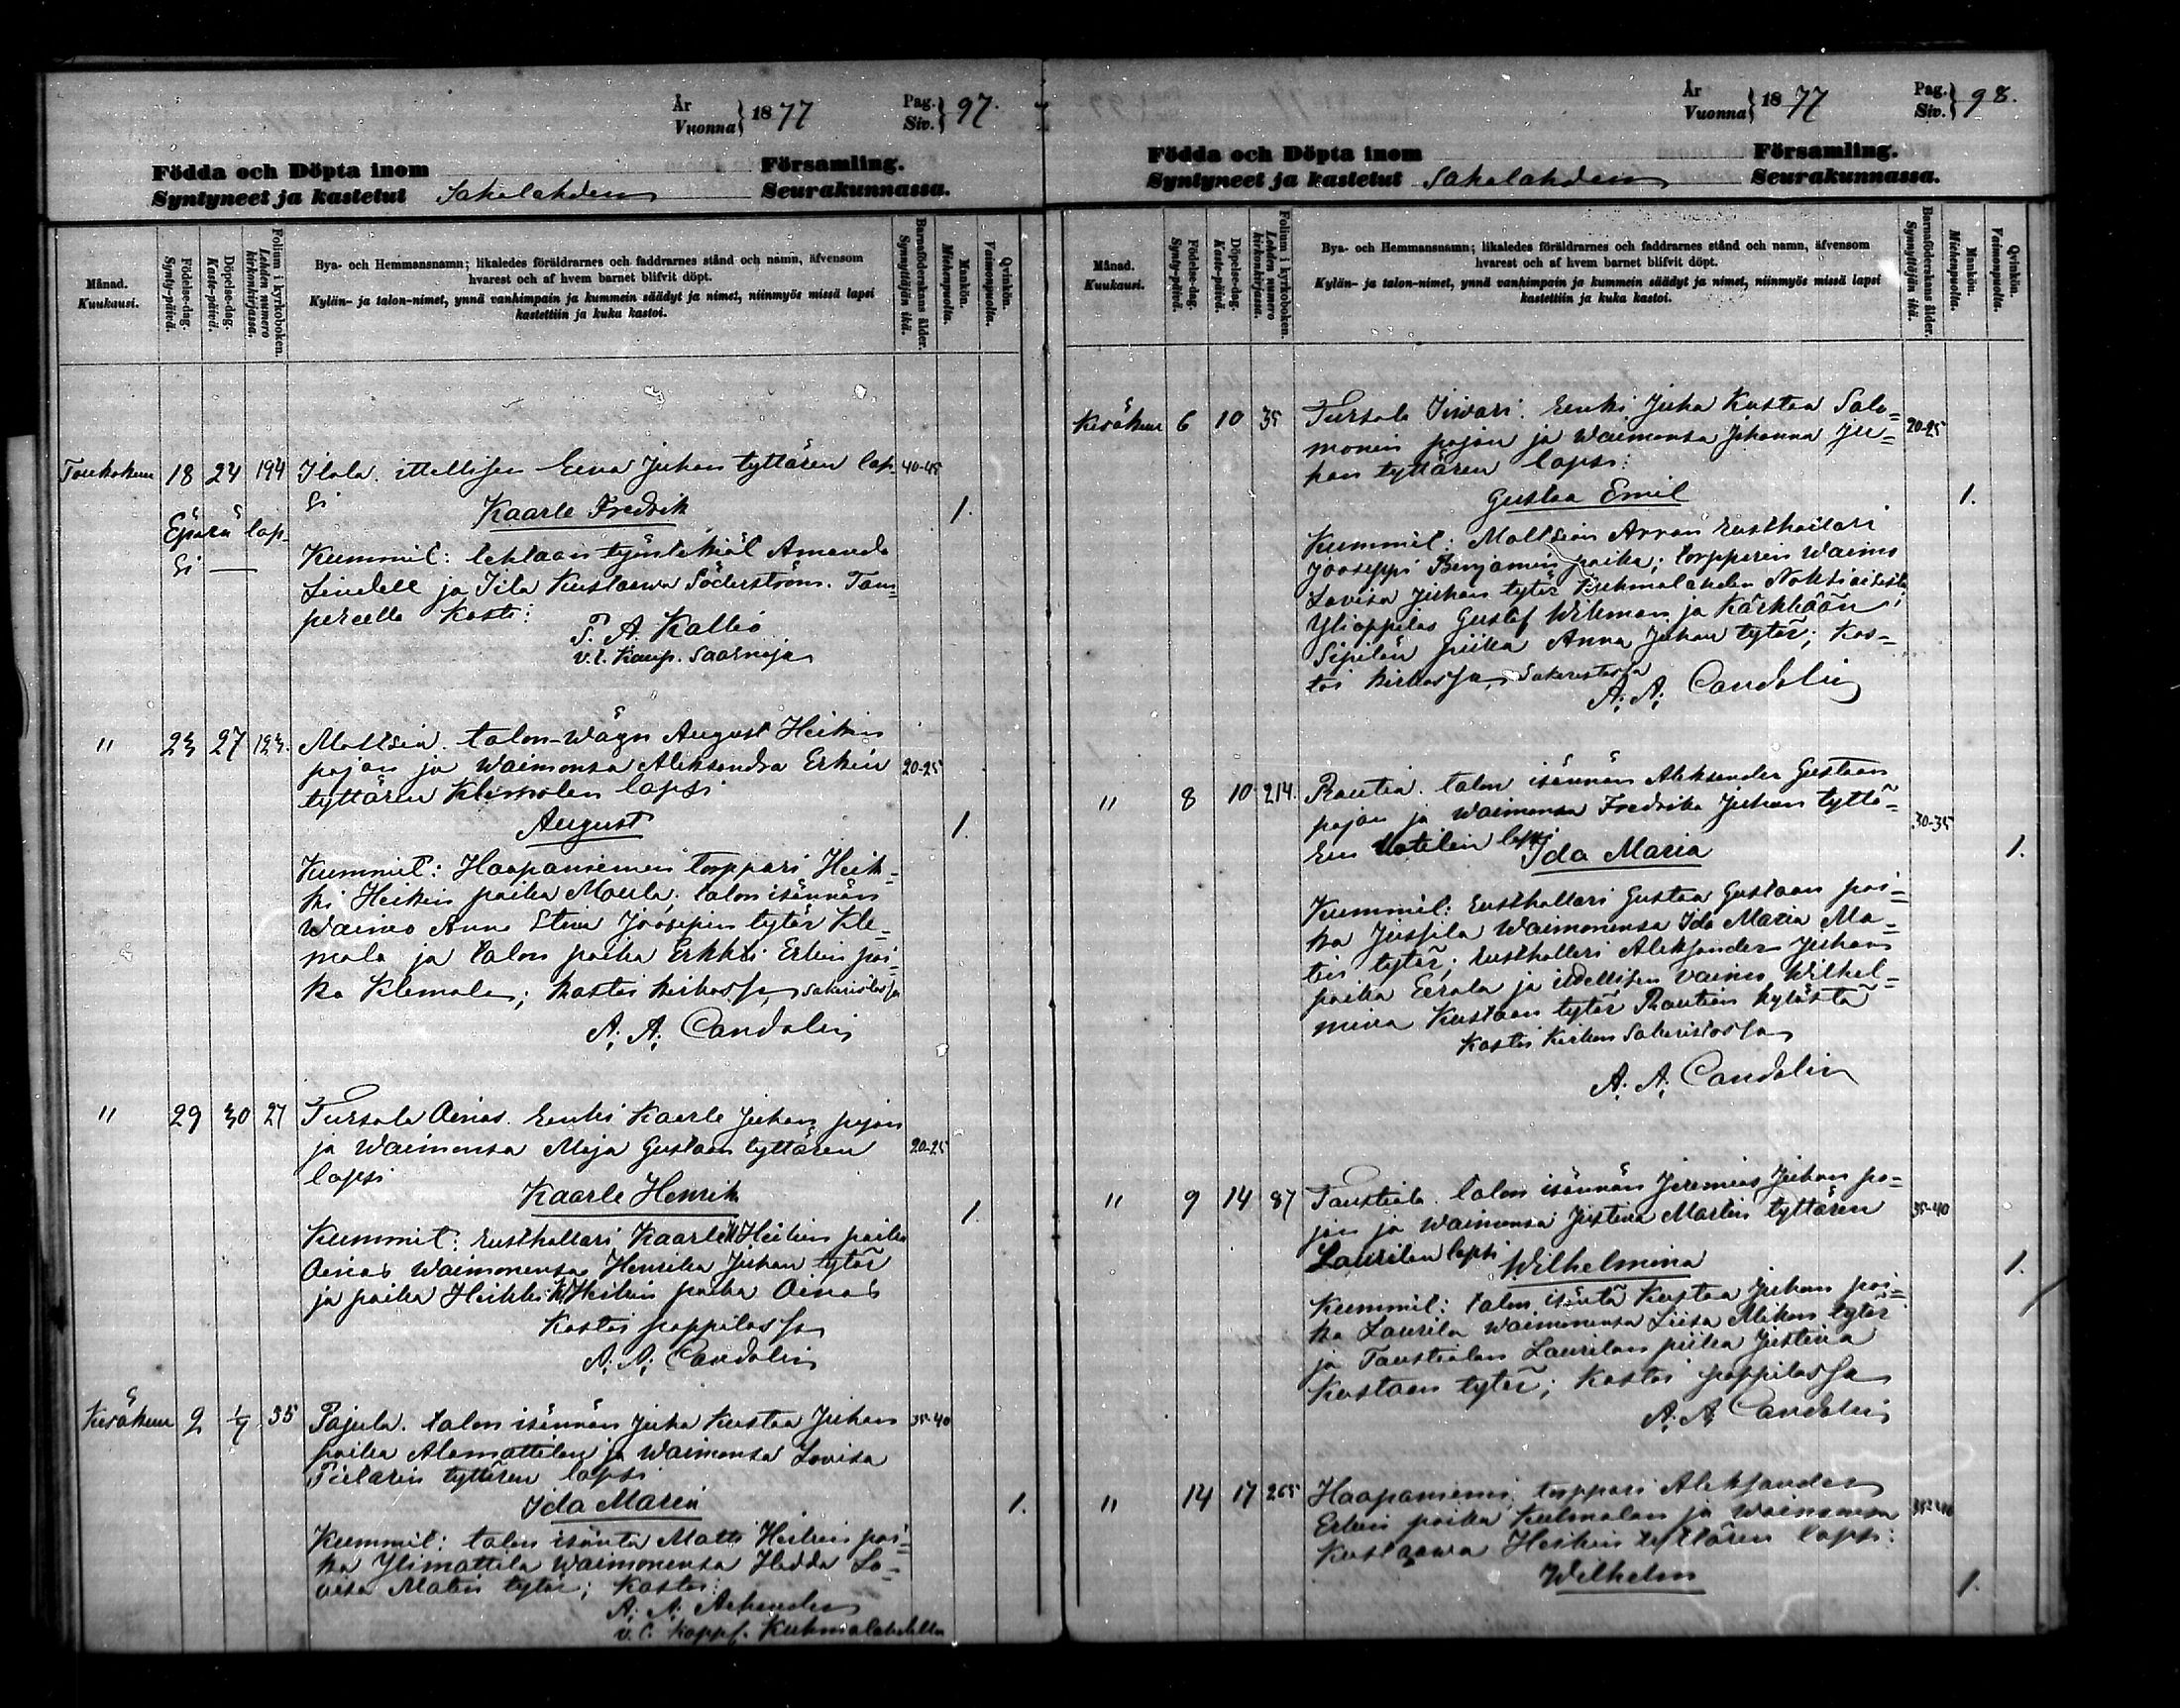 År
Vuonna } 1877
Pag.
Siv. } 97.
Födda och Döpta inom Församling.
Syntyneet ja kastetut Sahalahden Seurakunnassa.
Månad.
Kuukausi.
Födelse-dag.
Synty-päivä.
Döpelse-dag.
Kaste-päivä.
Folium i kyrkoboken.
Lehden numero
kirkonkirjassa.
Bya- och Hemmansnamn; likaledes föräldrarnes och faddrarnes stånd och namn, äfvensom
hvarest och af hvem barnet blifvit döpt.
Kylän- ja talon-nimet, ynnä vanhimpain ja kummein säädyt ja nimet, niinmyös missä lapsi
kastettiin ja kuka kastoi.
Barnaföderskans ålder.
Synnyttäjän ikä.
Mankön.
Miehenpuolia.
Qvinkön.
Vaimonpuolia.
Toukokuu 18 24 194 Ilola. ittellisen Eeva Juhan tyttären lap- 40-45
si Kaarle Fredrik 1.
Epärä lap-
si —
Kummit: tehtaan työntekiät Amanda
Lindell ja Iita Kustaava Söderström. Tam=
pereella Kasti:
F. A. Kallio
v.t. Kaup. Saarnaja
" 23 27 123. Mattsia. talon-Wäyn August Heikin
pojan ja Waimonsa Aleksandra Erkin 20-25
tyttären Klemolan lapsi
August 1.
Kummit: Haapaniemen torppari Heik-
ki Heikin poika Moula; talon isännän
Waimo Anna Stina Joosepin tytär Kle-
mola ja talon poika Erkki Erkin poi-
ka Klemola; kastoi kirkossa, sakaristossa
A. A. Candolin
" 29 30 27 Tursola Oinas. Renki Kaarle Juhan pojan
ja Waimonsa Maja Gustaan tyttären 20-25
lapsi
Kaarle Henrik 1.
Kummit: Rusthollari Kaarle Heikin poika
Oinas Waimonensa Henrika Juhan tytär
ja poika Heikki Heikin poika Oinas
Kastoi pappilassa
A. A. Candolin
Kesäkuu 2 35 Pajula. talon isännän Juha Kustaa Juhan 35-40
poika Alamattilan ja Waimonsa Lovisa
tyttären lapsi
Ida Maria 1.
Kummit: talon isäntä Matti Heikin poi-
ka Ylimattila Waimonensa Hedda Lo-
visa Matin tytär; Kastoi:
A. A.
v.t. kappl. Kuhmalahdella
År
Vuonna } 1877
Pag.
Siv. } 98.
Födda och Döpta inom Församling.
Syntyneet ja kastetut Sahalahden Seurakunnassa.
Månad.
Kuukausi.
Födelse-dag.
Synty-päivä.
Döpelse-dag.
Kaste-päivä.
Folium i kyrkoboken.
Lehden numero
kirkonkirjassa.
Bya- och Hemmansnamn; likaledes föräldrarnes och faddrarnes stånd och namn, äfvensom
hvarest och af hvem barnet blifvit döpt.
Kylän- ja talon-nimet, ynnä vanhimpain ja kummein säädyt ja nimet, niinmyös missä lapsi
kastettiin ja kuka kastoi.
Barnaföderskans ålder.
Synnyttäjän ikä.
Mankön.
Miehenpuolia.
Qvinkön.
Vaimonpuolia.
Kesäkuu 6 10 35 Tursola Iiwari. Renki Juha Kustaa Salo= 20-25
monin pojan ja Waimonsa Johanna Ju=
han tyttären lapsi:
Gustaa Emil 1.
Kummit: Mattsian Arran Rusthollari
Jooseppi Benjamin poika; torpparin Waimo
Lovisa Juhan tytär Kuhmalahden
Ylioppilas Gustaf Wikman ja Kärkkään
Sipilän piika Anna Juhan tytär; Kas-
toi kirkossa, Sakaristossa
A. A. Candolin
" 8 10 214. Rautia. talon isännän Aleksander Gustaan
pojan ja Waimonsa Fredrika Juhan tyttä= 30-35
ren Uotilan lapsi
Ida Maria 1.
Kummit: Rusthollari Gustaa Gustaan poi-
ka Jussila Waimonensa Ida Maria Ma-
tin tytär; Rusthollari Aleksander Juhan
poika Eerola ja ittellisen vaimo Wilhel-
mina Kustaan tytär Rautian kylästä
Kastoi Kirkon Sakaristossa
A. A. Candolin
" 9 14 87 Taustiala. talon isännän Jeremias Juhan po-
jan ja Waimonsa Justina Martin tyttären 35-40
Laurilan lapsi Wilhelmina 1.
Kummit: talon isäntä Kustaa Juhan poi-
ka Laurila Waimonensa Liisa Mikon tytär
ja Taustialan Laurilan piika Justina
Kustaan tytär; Kastoi pappilassa
A. A. Candolin
" 14 17 265 Haapaniemi, torppari Aleksander
Erkin poika Kulmalan ja Waimonsa 35-40
Kustaawa Heikin tyttären lapsi:
Wilhelm 1.